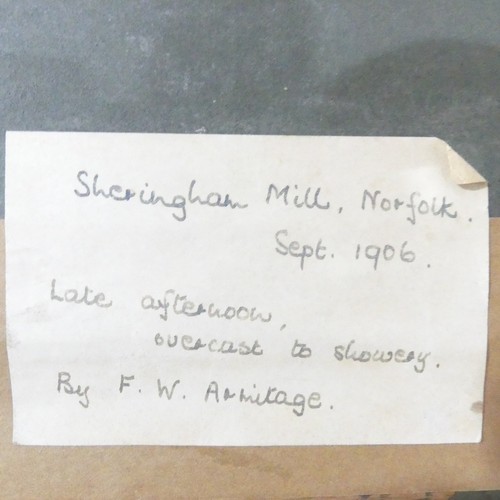 Sheringham Mill, Norfolk.
Sept. 1906.
Late afternoon,
overcast to showery.
By F. W. Armitage.